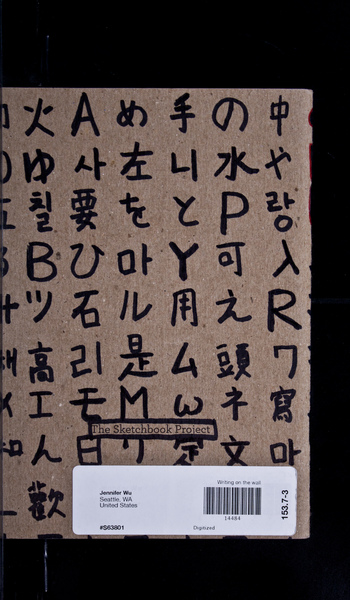 火 A め 手 の 中
ゆ 사 左 니 水 や
칠 要 を と P 랑
B ひ 마 Y 可 入
ツ 石 ル 用 え R
高 리 是 ム 頭 ワ
エ モ M ω ネ 寫
ん 文 마
歡
The Sketchbook Project
Writing on the wall
Jennifer Wu
Seattle, WA
United States
14484
153.7-3
#S63801
Digitized